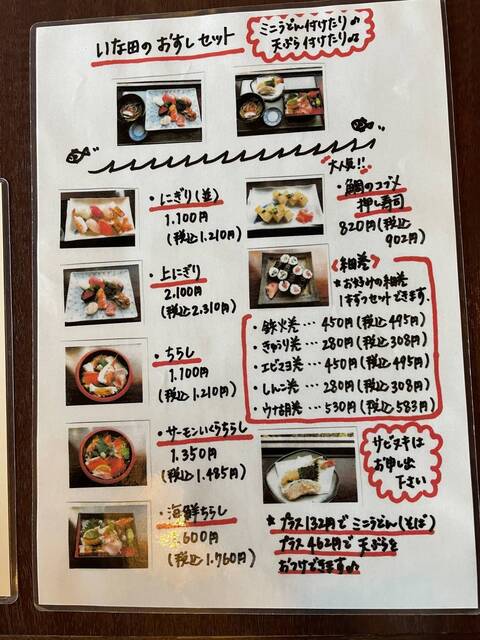 いな田のおすしセット
ミニうどん付けたり♪
天ぷら付けたり♫
大人気!!
・にぎり(並)
1.100円
(税込1.210円)
・上にぎり
2.100円
(税込2.310円)
・ちらし
1.100円
(税込1.210円)
・サーモンいくらちらし
1.350円
(税込1.485円)
・海鮮ちらし
1.600円
(税込1.760円)
・鯛のコブメ
押し寿司
820円(税込
902円)
《細巻》
*お好みの細巻
1本ずつセットできます.
・鉄火巻…450円(税込495円)
・きゅうり巻…280円(税込308円)
・エビマヨ巻…450円(税込495円)
・しんこ巻…280円(税込308円)
・ウナ胡巻…530円(税込583円)
サビヌキは
お申し出
下さい
*プラス132円でミニうどん(そば)
プラス462円で天ぷらを
おつけできます♪